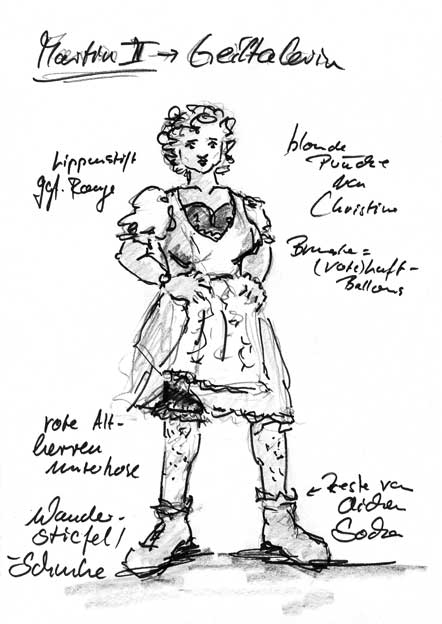 Martin II → Geiltalerin
Lippenstift
ggf. Rouge
blonde
Perücke
von
Christine
Brüste =
(rote) Luft-
Ballons
rote Alt-
herren
unterhose
Wander-
stiefel /
Schuhe
← Reste von
dicken
Socken